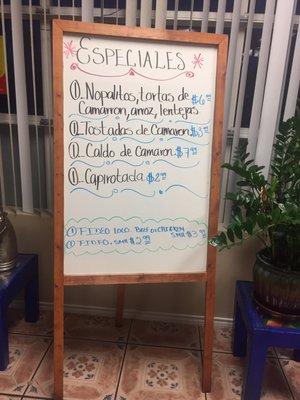 ESPECIALES
① Nopalitos, tortas de $6.00
Camaron, arroz, lentejas
① Tostadas de Camaron $3
① Caldo de Camaron $7.99
① Capirotada $2
① FIDEO LOCO BEEF OR CHICKEN
SMR $3
① FIDEO SMR $2